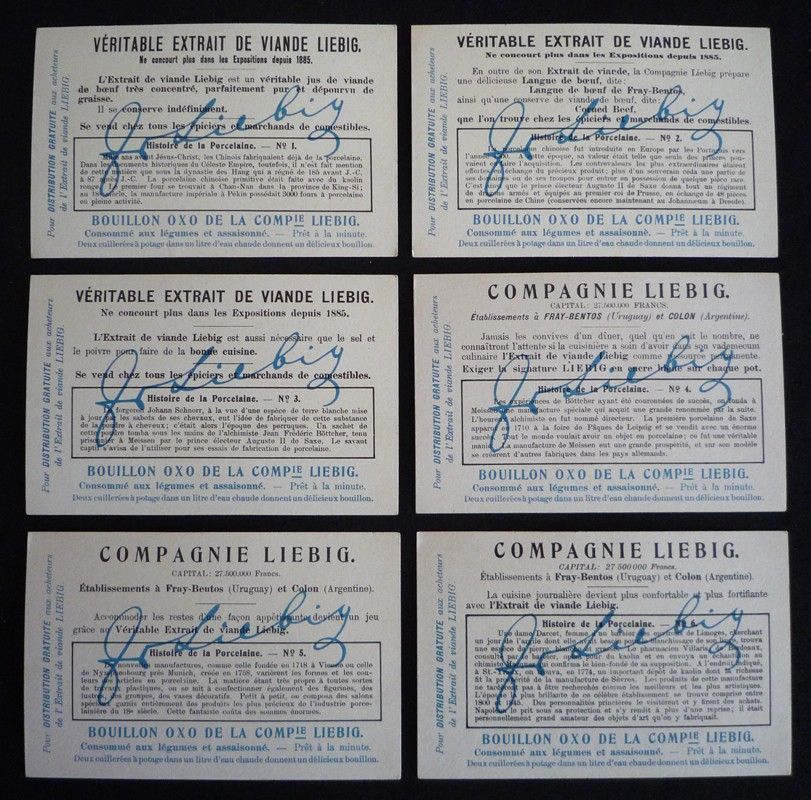 Pour DISTRIBUTION GRATUITE aux acheteurs
de l'Extrait de viande LIEBIG.
VÉRITABLE EXTRAIT DE VIANDE LIEBIG.
Ne concourt plus dans les Expositions depuis 1885.
L'Extrait de viande Liebig est un véritable jus de viande
de bœuf très concentré, parfaitement pur et dépourvu de
graisse.
Il se conserve indéfiniment.
Se vend chez tous les épiciers et marchands de comestibles.
Histoire de la Porcelaine. — No 1.
ans avant Jésus-Christ, les Chinois fabriquaient déjà de la porcelaine.
Dans les documents historiques du Céleste Empire, toutefois, il n'est fait mention
de cette matière que sous la dynastie des Hang qui a régné de 185 avant J.-C.
à 87 J.-C. La porcelaine chinoise primitive était faite avec du kaolin
rouge; le premier four se trouvait à Chan-Nan dans la province de King-Si;
au siècle, la manufacture impériale à Pékin possédait 3000 fours à porcelaine
en pleine activité.
BOUILLON OXO DE LA COMPIE LIEBIG.
Consommé aux légumes et assaisonné. — Prêt à la minute.
Deux cuillerées à potage dans un litre d'eau chaude donnent un délicieux bouillon.
Jv Liebig
Pour DISTRIBUTION GRATUITE aux acheteurs
de l'Extrait de viande LIEBIG.
VÉRITABLE EXTRAIT DE VIANDE LIEBIG.
Ne concourt plus dans les Expositions depuis 1885.
En outre de son Extrait de viande, la Compagnie Liebig prépare
une délicieuse Langue de bœuf, dite:
Langue de bœuf de Fray-Bentos,
ainsi qu'une conserve de viande de bœuf, dite:
Corned Beef,
que l'on trouve chez les épiciers et marchands de comestibles.
Histoire de la Porcelaine. — No 2.
chinoise fut introduite en Europe par les Portugais vers
l'an cette époque, sa valeur était telle que seuls des princes pouvaient
faire l'acquisition. Les contrevaleurs les plus extraordinaires étaient
offertes en échange du précieux produit; plus d'un souverain céda une partie de
ses ou de ses troupes pour entrer en possession de quelque pièce rare.
C'est ainsi que le prince électeur Auguste II de Saxe donna tout un régiment
de armés et équipés au premier roi de Prusse, en échange de 48 pièces
en porcelaine de Chine (conservées encore maintenant au Johanneum à Dresde).
BOUILLON OXO DE LA COMPIE LIEBIG.
Consommé aux légumes et assaisonné. — Prêt à la minute.
Deux cuillerées à potage dans un litre d'eau chaude donnent un délicieux bouillon.
Jv Liebig
Pour DISTRIBUTION GRATUITE aux acheteurs
de l'Extrait de viande LIEBIG.
VÉRITABLE EXTRAIT DE VIANDE LIEBIG.
Ne concourt plus dans les Expositions depuis 1885.
L'Extrait de viande Liebig est aussi nécessaire que le sel et
le poivre pour faire de la bonne cuisine.
Se vend chez tous les épiciers et marchands de comestibles.
Histoire de la Porcelaine. — No 3.
forgeron Johann Schnorr, à la vue d'une espèce de terre blanche mise
à jour par les sabots de ses chevaux, eut l'idée de fabriquer de cette substance
de la poudre à cheveux; c'était alors l'époque des perruques. Un sachet de
cette poudre tomba sous les mains de l'alchimiste Jean Frédéric Böttcher, tenu
prisonnier à Meissen par le prince électeur Auguste II de Saxe. Le savant
captif s'avisa de l'utiliser pour ses essais de fabrication de porcelaine.
BOUILLON OXO DE LA COMPIE LIEBIG.
Consommé aux légumes et assaisonné. — Prêt à la minute.
Deux cuillerées à potage dans un litre d'eau chaude donnent un délicieux bouillon.
Jv Liebig
Pour DISTRIBUTION GRATUITE aux acheteurs
de l'Extrait de viande LIEBIG.
COMPAGNIE LIEBIG.
CAPITAL: 27.500.000 FRANCS.
Établissements à FRAY-BENTOS (Uruguay) et COLON (Argentine).
Jamais les convives d'un dîner, quel qu'en soit le nombre, ne
connaîtront l'attente si la cuisinière a soin d'avoir dans son vademecum
culinaire l'Extrait de viande Liebig comme réserve permanente.
Exiger la signature LIEBIG en encre bleue sur chaque pot.
Histoire de la Porcelaine. — No 4.
Les expériences de Böttcher ayant été couronnées de succès, on fonda à
Meissen une manufacture spéciale qui acquit une grande renommée par la suite.
L'alchimiste en fut nommé directeur. La première porcelaine de Saxe
apparut en 1710 à la foire de Pâques de Leipzig et se vendit avec un énorme
succès. Tout le monde voulait avoir un objet en porcelaine; ce fut une véritable
manie. La manufacture de Meissen eut une grande prospérité, et sur son modèle
se créèrent d'autres fabriques dans les pays allemands.
BOUILLON OXO DE LA COMPIE LIEBIG.
Consommé aux légumes et assaisonné. — Prêt à la minute.
Deux cuillerées à potage dans un litre d'eau chaude donnent un délicieux bouillon.
Jv Liebig
Pour DISTRIBUTION GRATUITE aux acheteurs
de l'Extrait de viande LIEBIG.
COMPAGNIE LIEBIG.
CAPITAL: 27.500.000 Francs.
Établissements à Fray-Bentos (Uruguay) et Colon (Argentine).
Accommoder les restes d'une façon appétissante devient un jeu
grâce au Véritable Extrait de viande Liebig.
Histoire de la Porcelaine. — No 5.
manufactures, comme celle fondée en 1718 à Vienne ou celle
de Nymphenbourg près Munich, créée en 1758, varièrent les formes et les couleurs
des articles en porcelaine. La matière étant très propre à toutes sortes
de plastiques, on se mit à confectionner également des figurines, des
lustres, des groupes, des vases décoratifs. Petit à petit, on composa des salons
spéciaux garnis entièrement des produits les plus précieux de l'industrie porcelainière
du 18e siècle. Cette fantaisie coûta des sommes énormes.
BOUILLON OXO DE LA COMPIE LIEBIG.
Consommé aux légumes et assaisonné. — Prêt à la minute.
Deux cuillerées à potage dans un litre d'eau chaude donnent un délicieux bouillon.
Jv Liebig
Pour DISTRIBUTION GRATUITE aux acheteurs
de l'Extrait de viande LIEBIG.
COMPAGNIE LIEBIG.
CAPITAL: 27 500 000 Francs.
Établissements à Fray-Bentos (Uruguay) et Colon (Argentine).
La cuisine journalière devient plus confortable et plus fortifiante
avec l'Extrait de viande Liebig.
Histoire de la Porcelaine. — No 6.
Une dame Darcet, femme d'un de Limoges, cherchant
un jour de l'argile dont elle besoin pour le blanchissage de son linge, trouva
une espèce de terre Le pharmacien Villaris, de Bordeaux,
du kaolin et en envoya un échantillon au
chimiste qui confirma le bien-fondé de sa supposition. A l'endroit indiqué,
à St.- on trouva, en 1774, un important dépôt de kaolin dont la richesse
fit la prospérité de la manufacture de Sèvres. Les produits de cette manufacture
ne tardèrent pas à être recherchés comme les meilleurs et les plus artistiques.
L'époque la plus brillante de ce célèbre établissement se trouve comprise entre
1800 et Des personnalités princières le visitèrent et y firent des achats.
Napoléon le prit sous sa protection et s'y rendit à plus d'une reprise; il était
personnellement grand amateur des objets d'art qu'on y fabriquait.
BOUILLON OXO DE LA COMPIE LIEBIG.
Consommé aux légumes et assaisonné. — Prêt à la minute.
Deux cuillerées à potage dans un litre d'eau chaude donnent un délicieux bouillon.
Jv Liebig